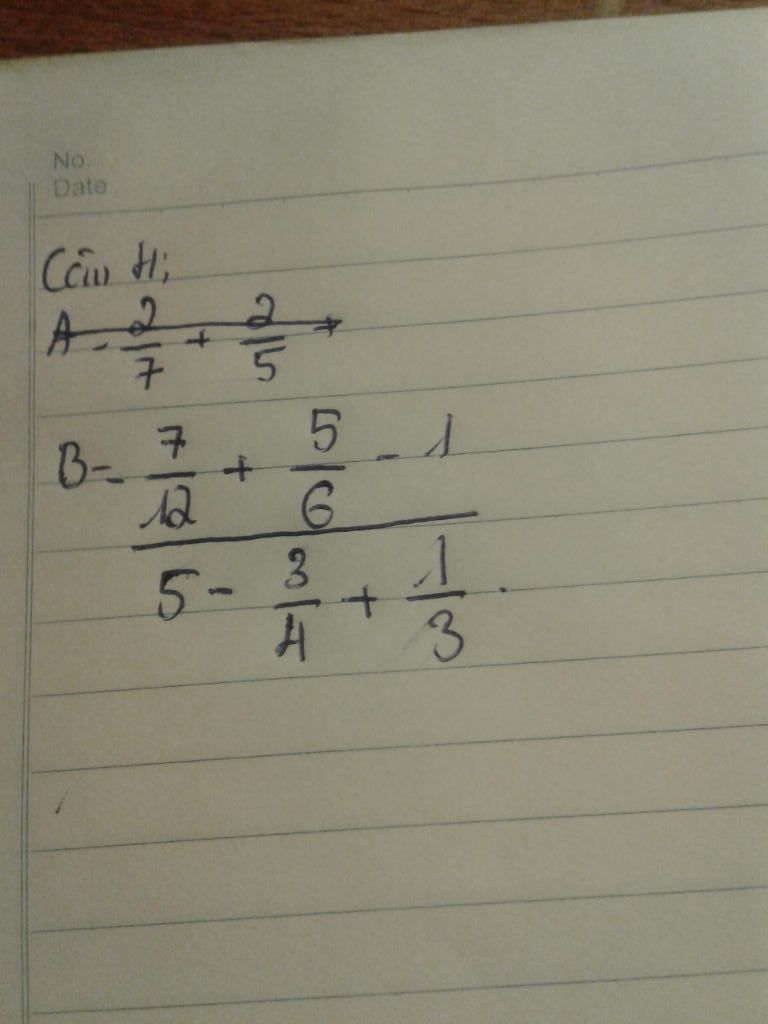 No.
Date
Câu 4:
A = 2/7 + 2/5 +
B = (7/12 + 5/6 - 1)/(5 - 3/4 + 1/3).